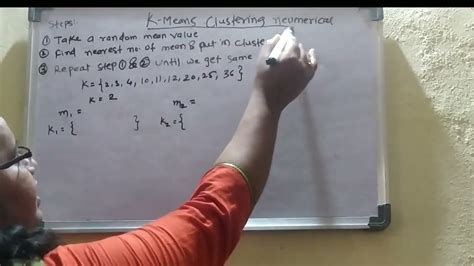 K-Means Clustering neumerical
Steps:
① Take a random mean value
② Find nearest no. of mean & put in Cluste
③ Repeat step ① & ② until we get same
K = {2,3,4,10,11,12,20,25,36}
K = 2
m₁ =          m₂ =
K₁ = {          }     K₂ = {